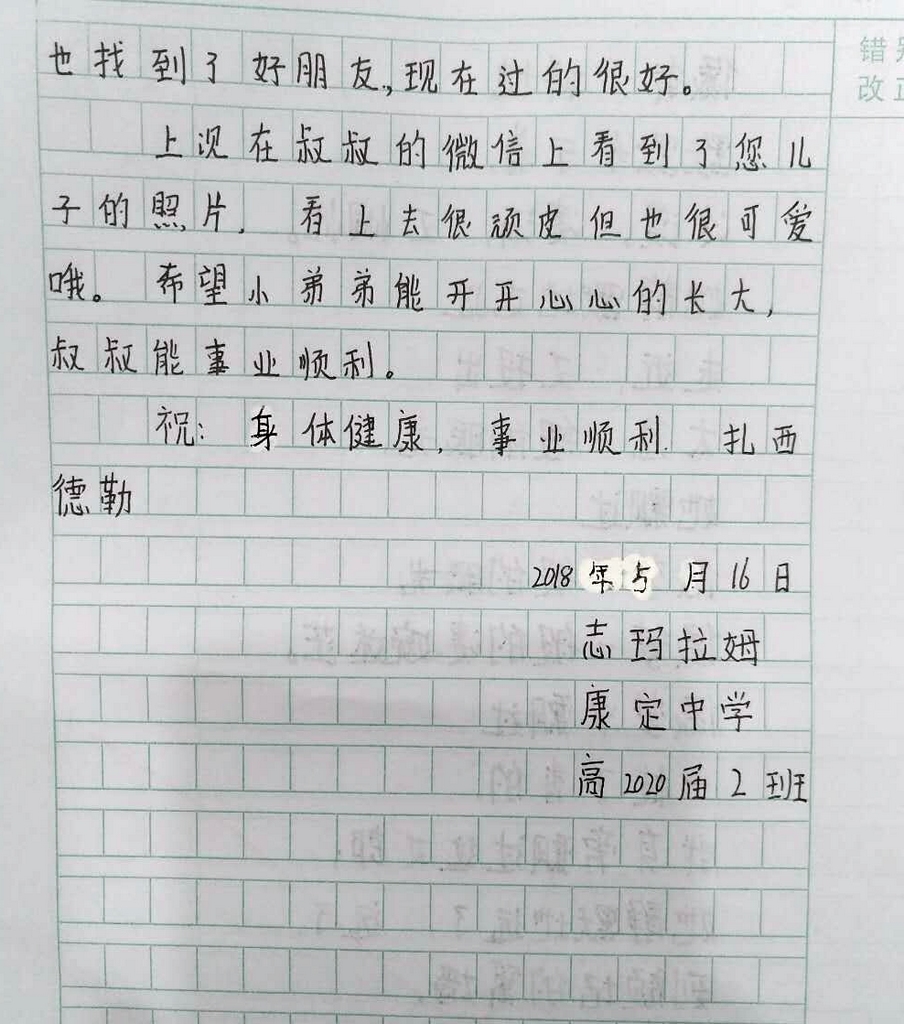 也找到了好朋友,现在过的很好。
上次在叔叔的微信上看到了您儿
子的照片，看上去很顽皮但也很可爱
哦。希望小弟弟能开开心心的长大，
叔叔能事业顺利。
祝：身体健康，事业顺利.扎西
德勒
2018年5月16日
志玛拉姆
康定中学
高2020届2班
错
改正